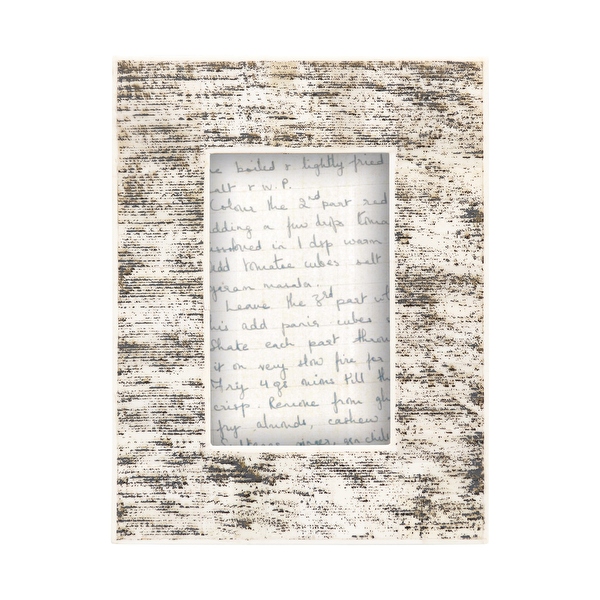 e boiled & lightly fried
alt & W.P.
Colour the 2nd part red
dding a few drps toma
in 1 dsp warm
dd tomatoe cubes salt
garam masala.
Leave the 3rd part wh
his add panir cubes
Shake each part throu
it on very slow fire for
Fry 4 go mins till th
crisp. Remove from
fry almonds, cashew
ginger, gen chill